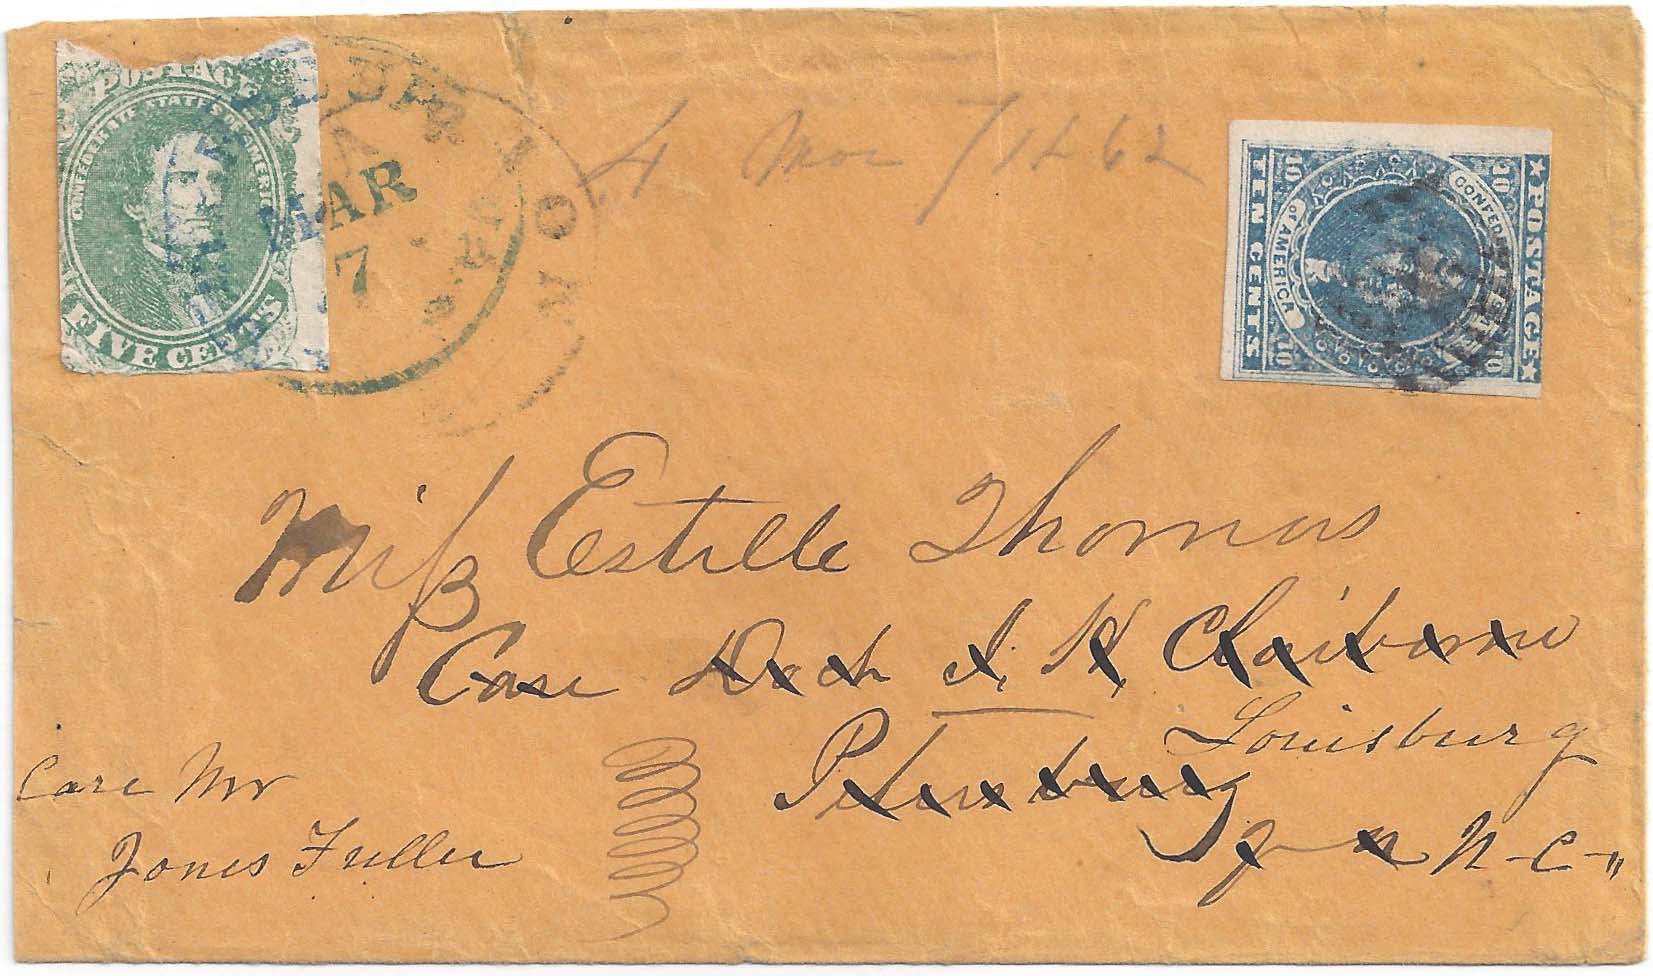 POSTAGE
CONFEDERATE STATES OF AMERICA
FIVE CENTS
MAR
7
7/1862
10 10
TEN CENTS
POSTAGE
of AMERICA
10 10
Miſs Estelle Thomas
Care Doct J. H. Claiborne
Louisburg
Petersburg
N-C-"
Care Mr
Jones Fuller